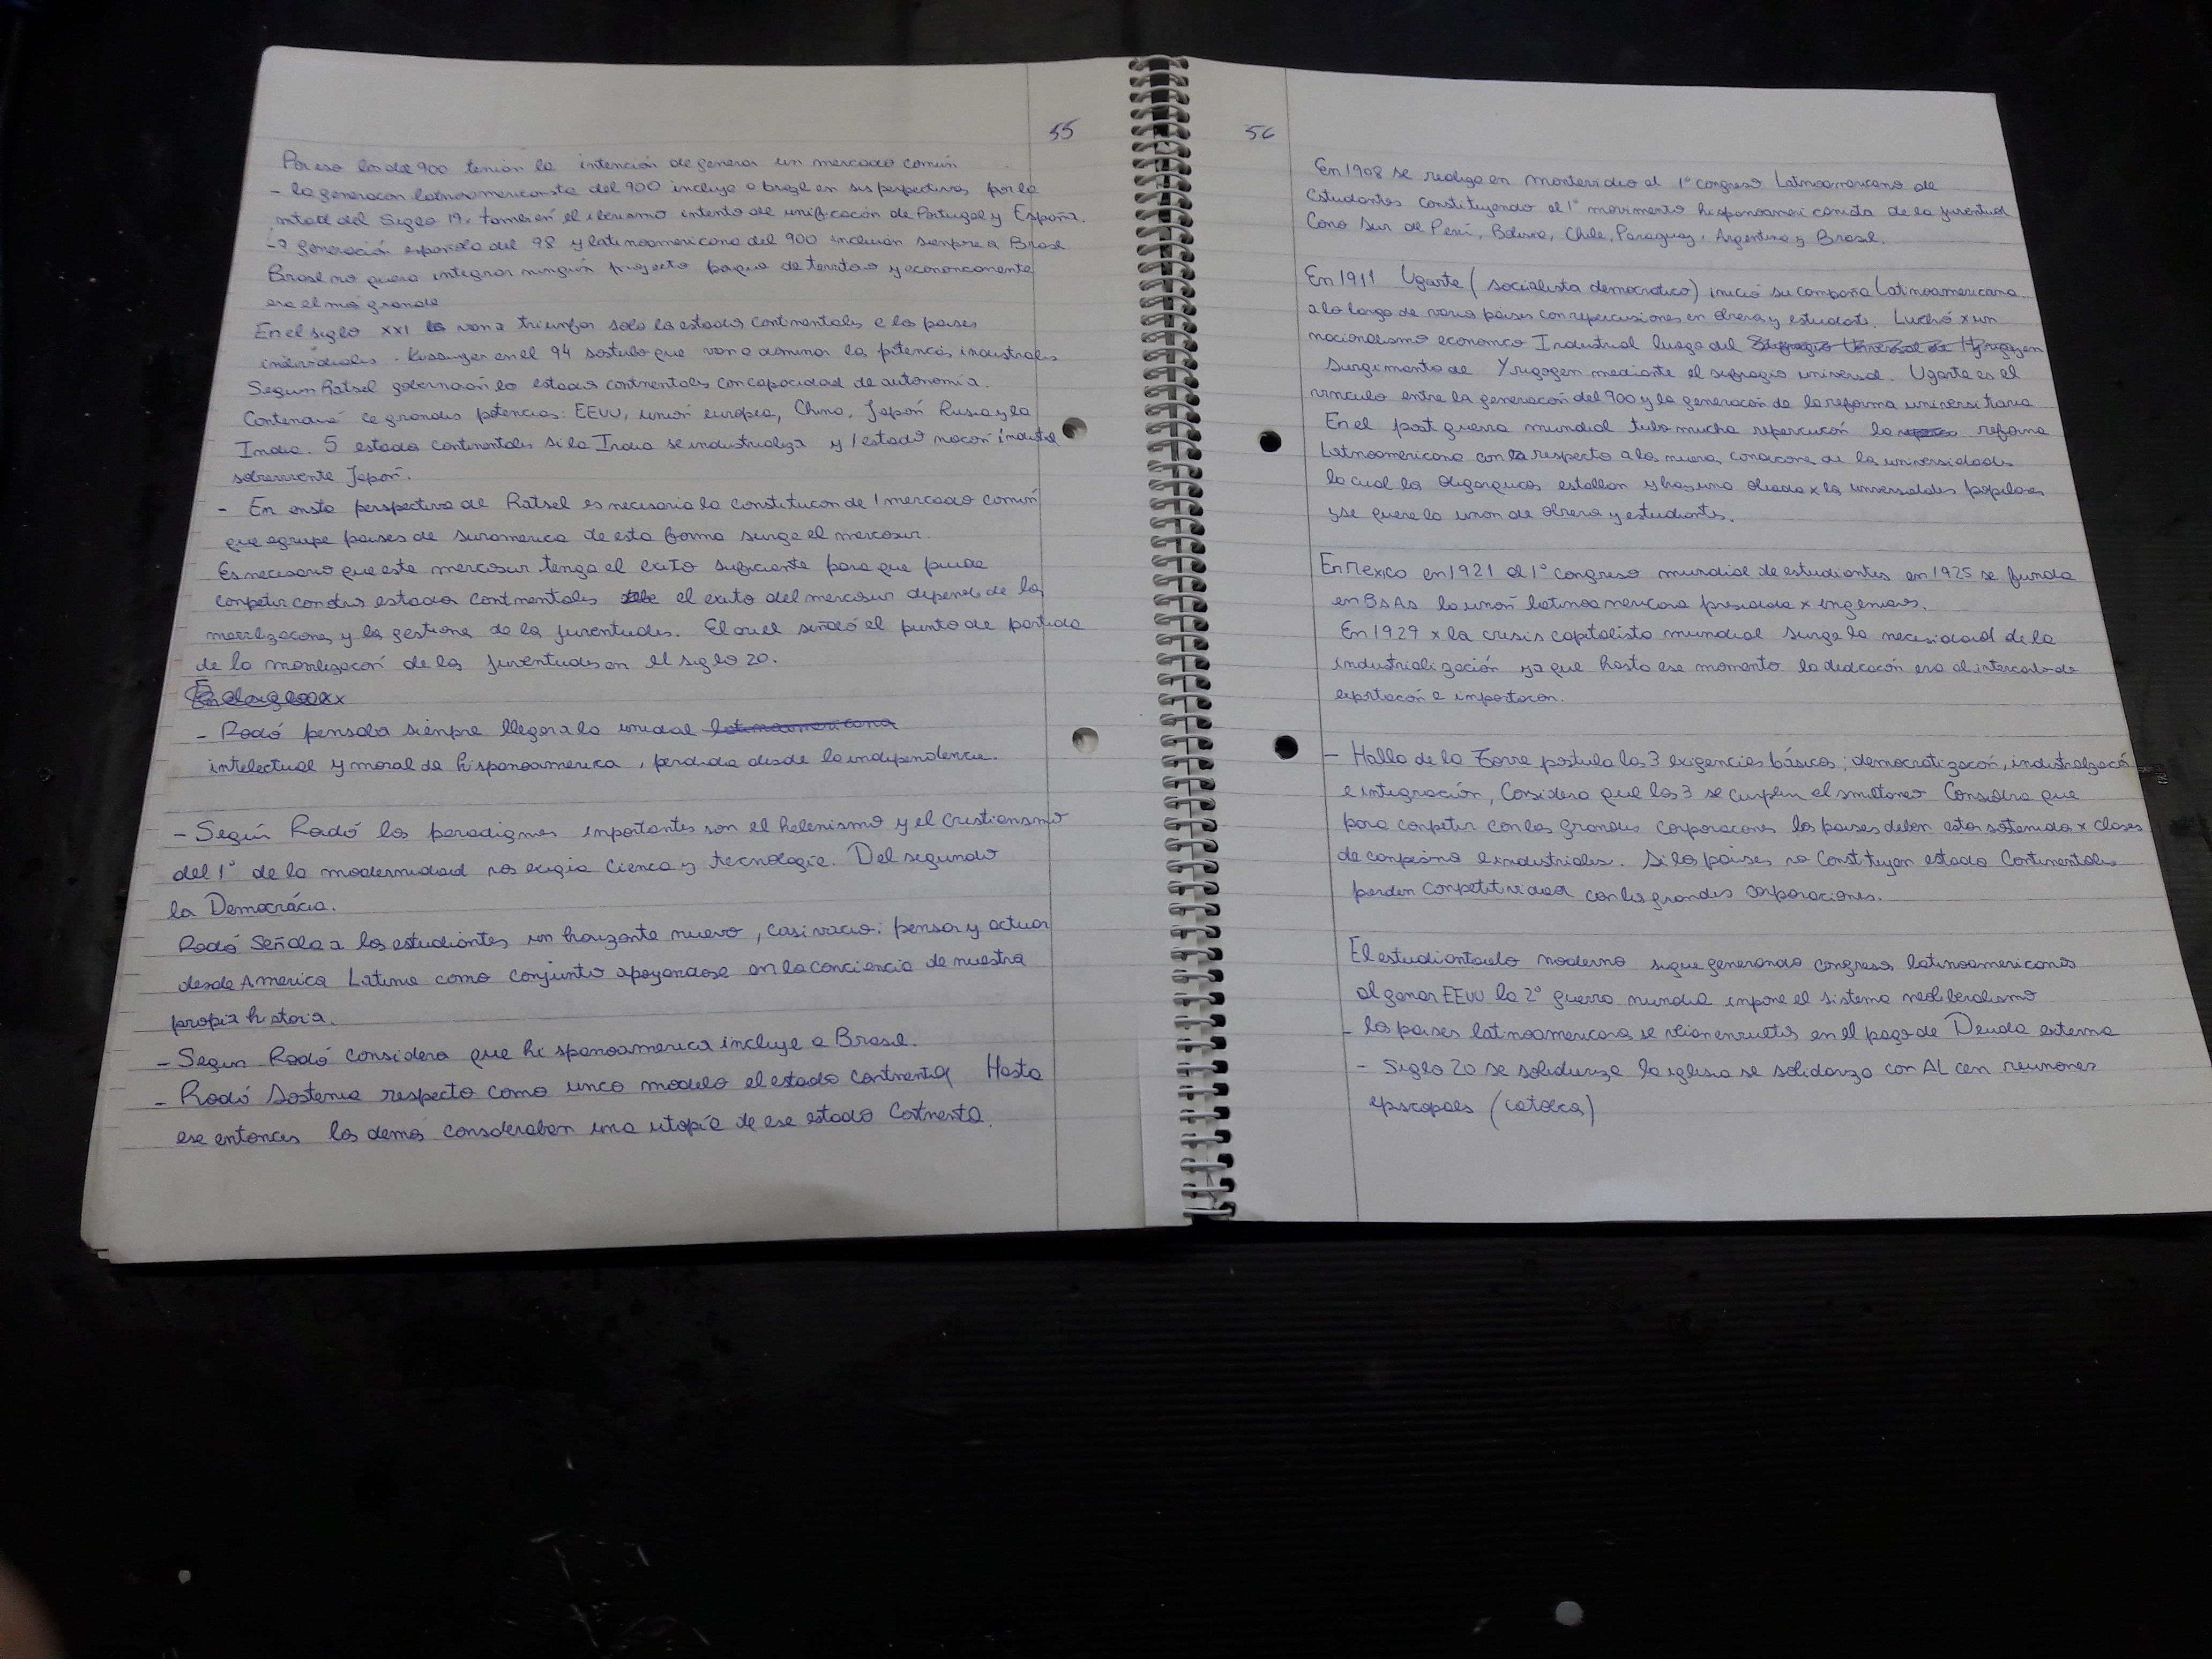 55
Por eso los del 900 tenian la intención de generar un mercado común
- la generacon latinoamericanista del 900 incluye a brasil en sus perspectivas por la
mitad del Siglo 19. tomaren el iberismo intento de unificacón de Portugal y España.
-> generación española del 98 y latinoamericana del 900 incluian siempre a Brasil
Brasil no quera integrar ningún proyecto porque de territorio y economicamente
era el más grande
En el siglo XXI van a triunfar solo los estados continentales e los paises
individuales. Kissinger en el 94 sostubo que van a dominar las potencias industriales
Segun Ratsel gobernarán los estados continentales con capacidad de autonomia.
Contenará 6 grandes potencias: EEUU, unión europea, China, Japón Rusia y la
India. 5 estados continentales si la India se industrializa y 1 estado nacón industrial
sobreviviente Japón.
- En ensta perspectiva de Ratsel es necesaria la constitucon de 1 mercado común
que agrupe paises de suramerica de esta forma surge el mercosur.
Es necesario que este mercosur tenga el exito suficiente para que pueda
competir con otros estados continentales el exito del mercosur depende de las
movilizacones y las gestiones de las juventudes. El cual señaló el punto de partida
de la movilizacón de las juventudes en el siglo 20.
- Rodó pensaba siempre llegar a la unidad latinoamericana
intelectual y moral de hispanoamerica, perdida desde la independencia.
- Según Rodó los paradigmas importantes son el helenismo y el cristianismo
del 1° de la modernidad nos exigia ciencia y tecnologia. Del segundo
la Democrácia.
Rodó Señala a los estudiantes un horizonte nuevo, casi vacio: pensar y actuar
desde America Latina como conjunto apoyandose en la conciencia de nuestra
propia historia.
- Segun Rodó considera que hispanoamerica incluye a Brasil.
- Rodó Sostenia respecto como unico modelo el estado continental Hasta
ese entonces los demás consideraban una utopía de ese estado Continental.
56
En 1908 se realiza en montevideo el 1° congreso Latinoamericano de
Estudiantes constituyendo el 1° movimiento hispanoamericanista de la juventud
Cono Sur de Perú, Bolivia, Chile, Paraguay, Argentina y Brasil.
En 1911 Ugarte (socialista democratico) inició su campaña Latinoamericana.
a lo largo de varios paises con repercusiones en obreros y estudiante. Luchó x un
nacionalismo economico Industrial luego del Sufragio Universal de Yrigoyen
Surgimento de Yrigogen mediante el sufragio universal. Ugarte es el
vinculo entre la generacón del 900 y la generacón de la reforma universitaria
En el post guerra mundial tubo mucha repercución la reforma
Latinoamericana con respecto a las nuevas condicones de las universidades
lo cual las oligarquicas estallan y hay una oleada x las universidades populares
y se quere la union de obreros y estudiantes.
En Mexico en 1921 el 1° congreso mundial de estudiantes en 1925 se funda
en BsAs la unión latinoamericana presidida x ingenieros.
En 1929 x la crisis capitalista mundial surge la necesidad de la
industrialización ya que hasta ese momento la dedicacón era al intercambio de
exportacón e importacon.
- Halla de la Torre postula las 3 exigencias básicas: democratizacón, industralizacón
e integración, Considera que las 3 se cumplen el simultaneo Considera que
para competir con las grandes corporacones los paises deben estar sostenidos x clases
de campesino e industriales. Si los paises no Constituyen estado Continentales
perden competitividad con las grandes corporaciones.
El estudiantado moderno sigue generando congresos latinoamericanos
al ganar EEUU la 2° guerra mundial impone el sistema neoliberalismo
- los paises latinoamericanos se veian envueltos en el pago de Deuda externa
- Siglo 20 se solidariza la iglesia se solidarza con AL con reuniones
episcopales (catolica)